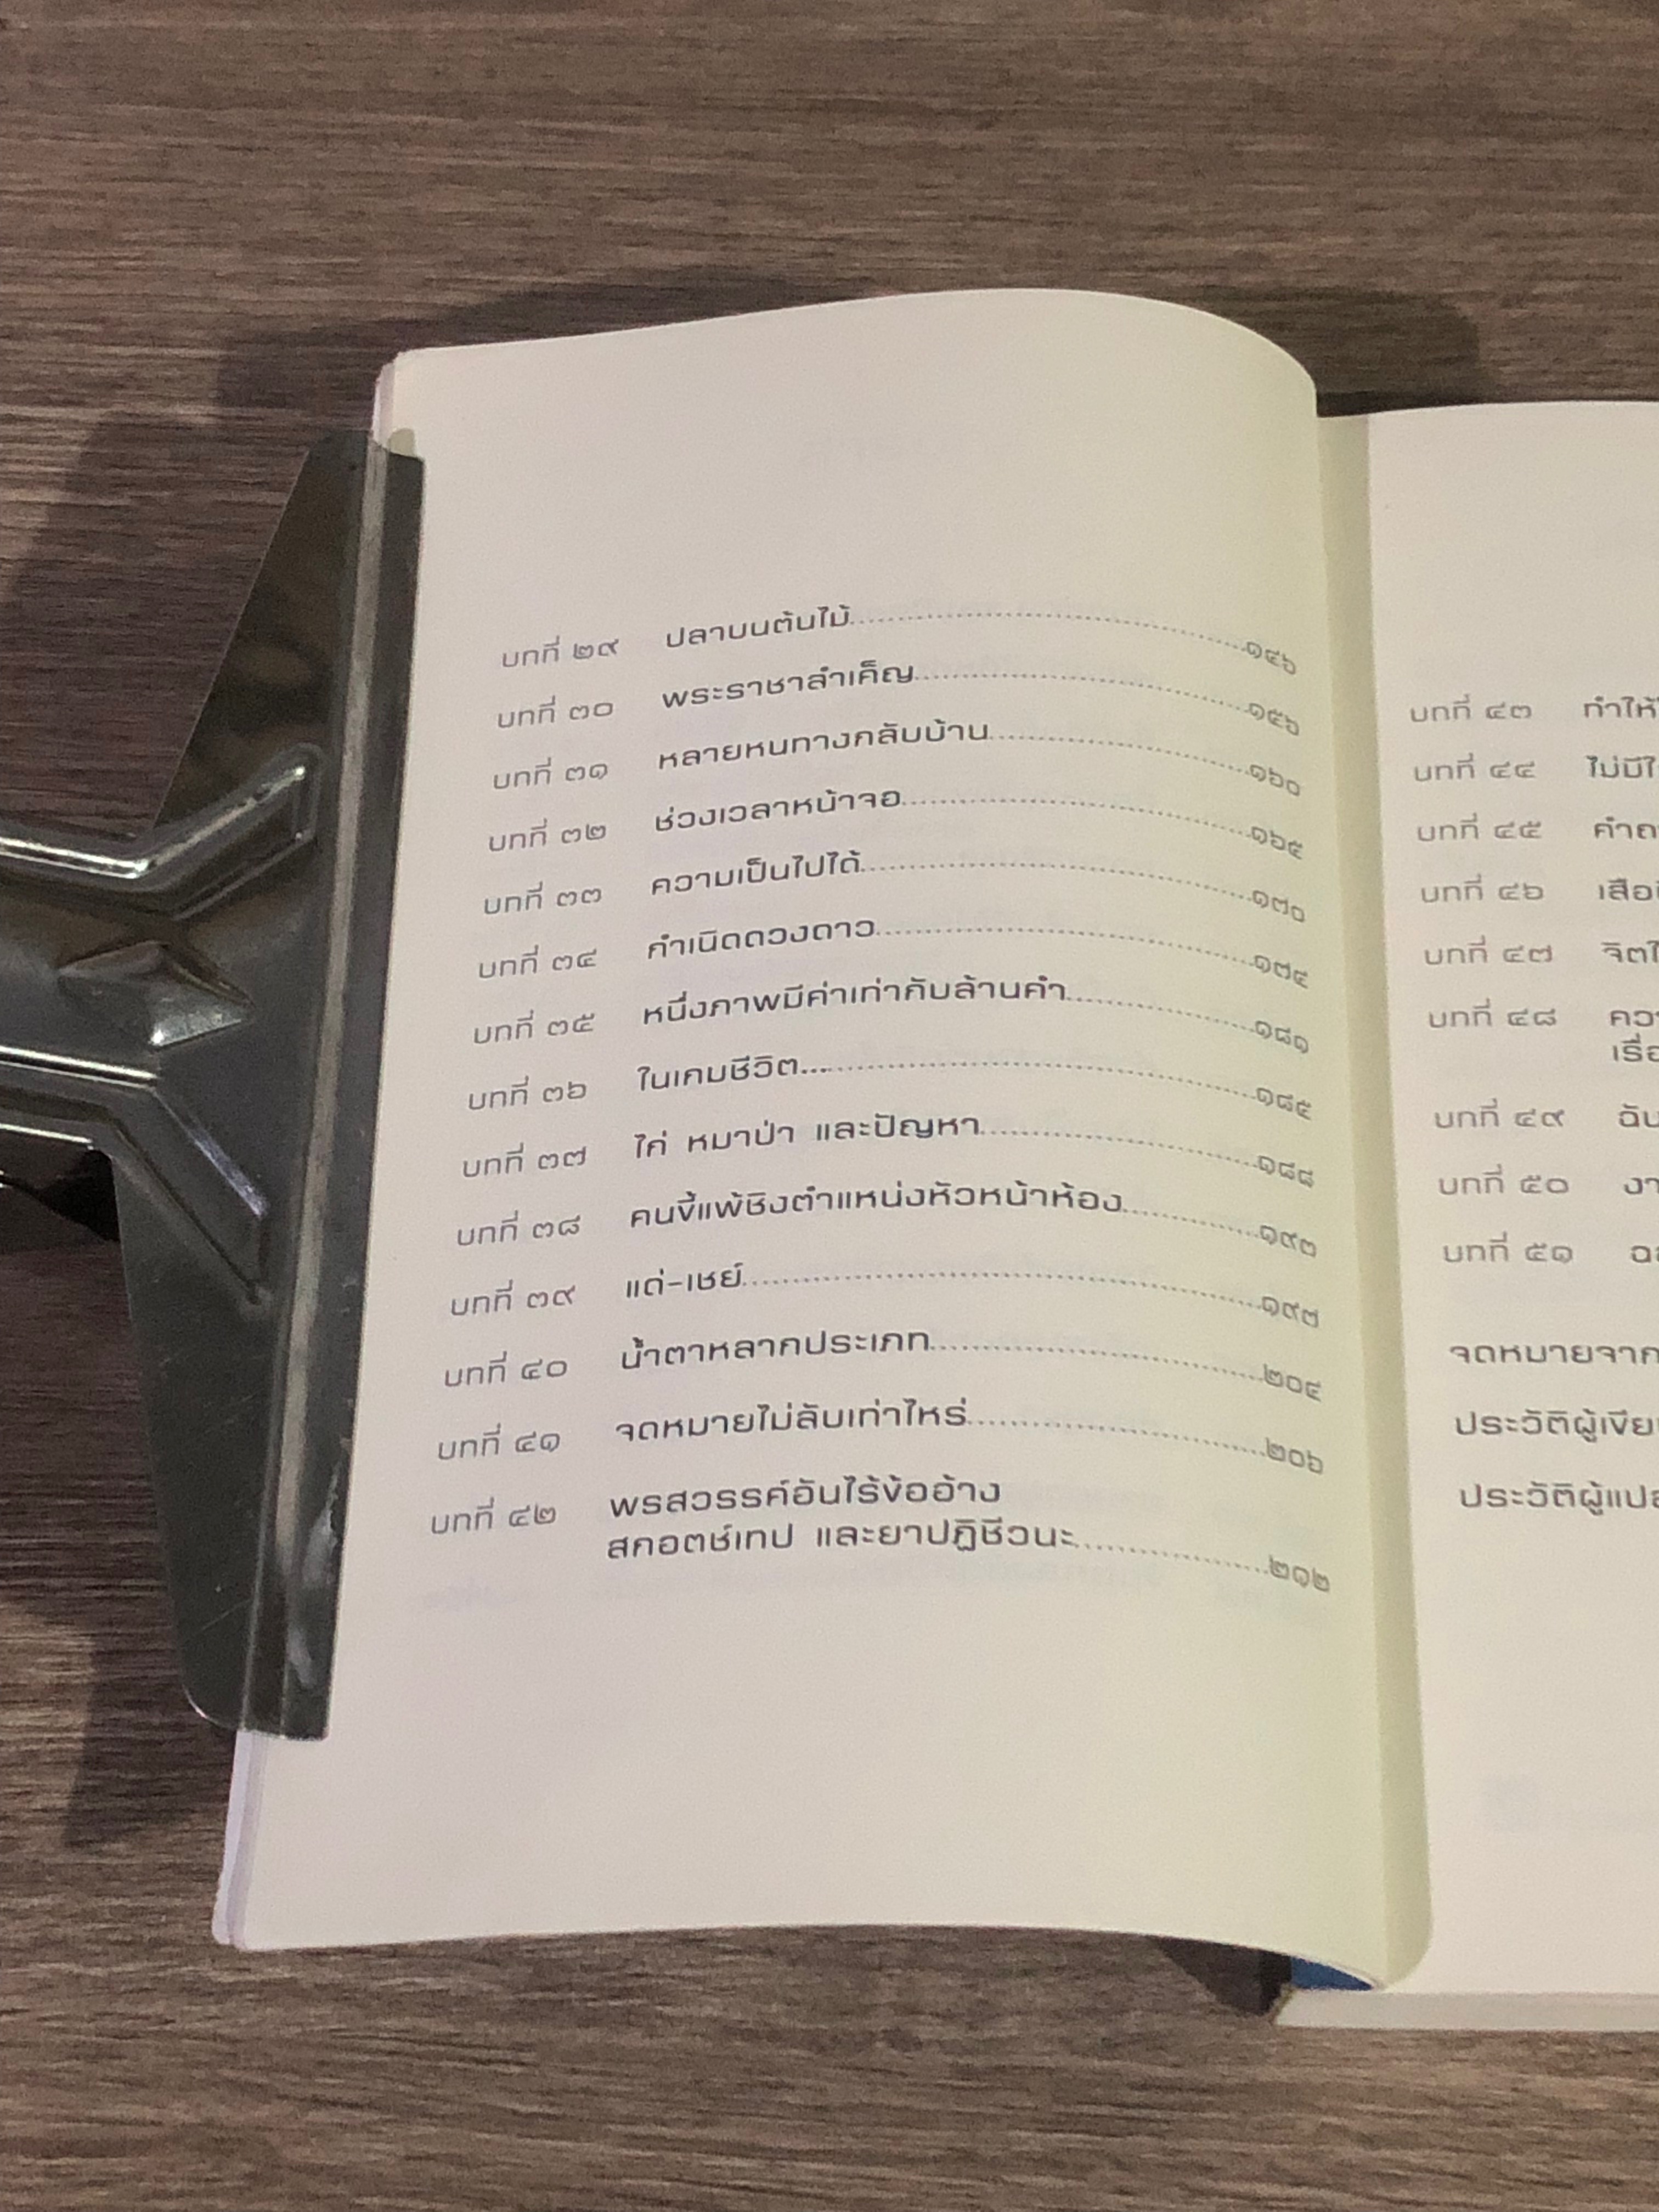 บทที่ ๒๙ ปลาบนต้นไม้..........๑๔๖
บทที่ ๓๐ พระราชาลำเค็ญ..........๑๕๖
บทที่ ๓๑ หลายหนทางกลับบ้าน..........๑๖๐
บทที่ ๓๒ ช่วงเวลาหน้าจอ..........๑๖๕
บทที่ ๓๓ ความเป็นไปได้..........๑๗๐
บทที่ ๓๔ กำเนิดดวงดาว..........๑๗๔
บทที่ ๓๕ หนึ่งภาพมีค่าเท่ากับล้านคำ..........๑๘๑
บทที่ ๓๖ ในเกมชีวิต.............๑๘๕
บทที่ ๓๗ ไก่ หมาป่า และปัญหา..........๑๘๘
บทที่ ๓๘ คนขี้แพ้ชิงตำแหน่งหัวหน้าห้อง..........๑๙๓
บทที่ ๓๙ แด่-เชย์..........๑๙๗
บทที่ ๔๐ น้ำตาหลากประเภท..........๒๐๔
บทที่ ๔๑ จดหมายไม่ลับเท่าไหร่..........๒๐๖
บทที่ ๔๒ พรสวรรค์อันไร้ข้ออ้าง
สกอตช์เทป และยาปฏิชีวนะ..........๒๑๒
บทที่ ๔๓ ทำให้
บทที่ ๔๔ ไม่มี
บทที่ ๔๕
บทที่ ๔๖ เสือ
บทที่ ๔๗ จิต
บทที่ ๔๘
บทที่ ๔๙
บทที่ ๕๐
บทที่ ๕๑
จดหมายจาก
ประวัติผู้เขีย
ประวัติผู้แปล